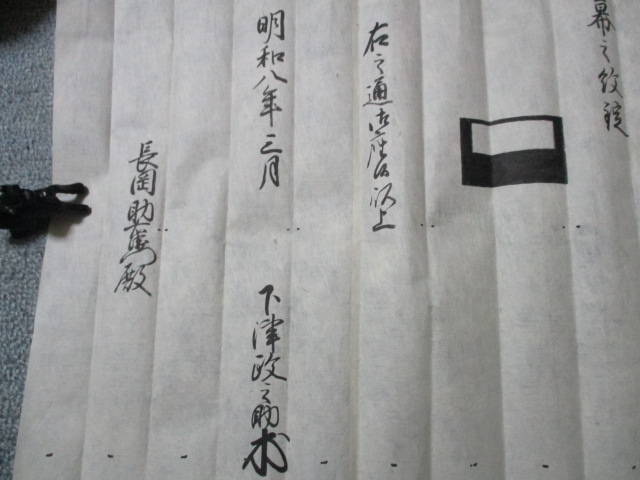 幕之紋
右之通御座候以上
明和八年三月
下津政之助
長岡助右衛門殿